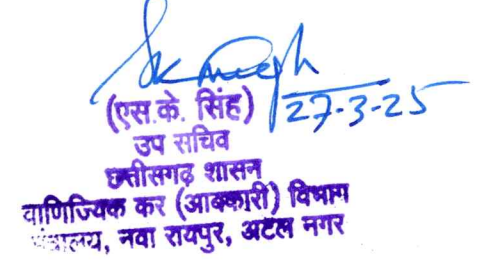 27-3-25
(एस.के. सिंह)
उप सचिव
छत्तीसगढ़ शासन
वाणिज्यिक कर (आबकारी) विभाग
मंत्रालय, नवा रायपुर, अटल नगर